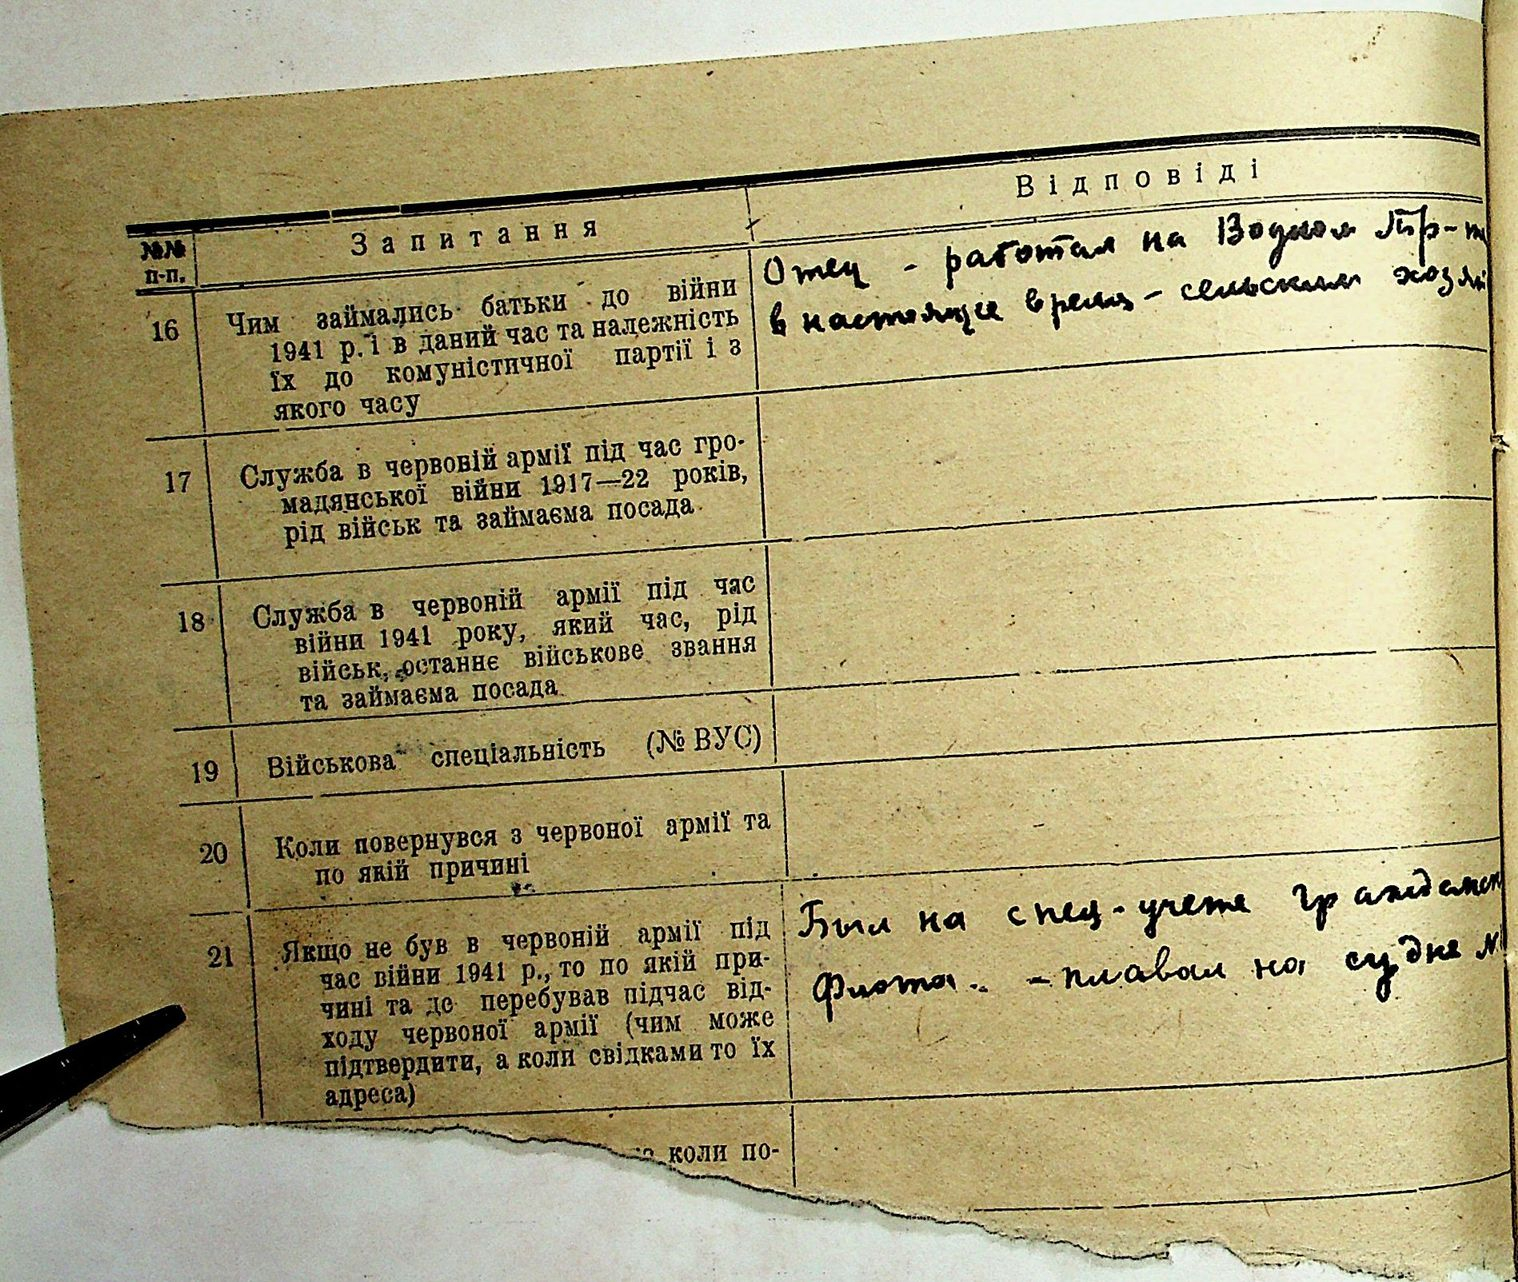 №№ п-п.
Запитання
Відповіді
16
Чим займались батьки до війни
1941 р. і в даний час та належність
їх до комуністичної партії і з
якого часу
Отец - работал на Водном Тр-те
в настоящее время - сельским хозяй
17
Служба в червоній армії під час гро-
мадянської війни 1917—22 років,
рід військ та займаєма посада
18
Служба в червоній армії під час
війни 1941 року, який час, рід
військ, останнє військове звання
та займаєма посада
19
Військова спеціальність (№ ВУС)
20
Коли повернувся з червоної армії та
по якій причині
21
Якщо не був в червоній армії під
час війни 1941 р., то по якій при-
чині та де перебував підчас від-
ходу червоної армії (чим може
підтвердити, а коли свідками то їх
адреса)
Был на спец-учете гражданск
Флота.. - плавал на судне №
коли по-